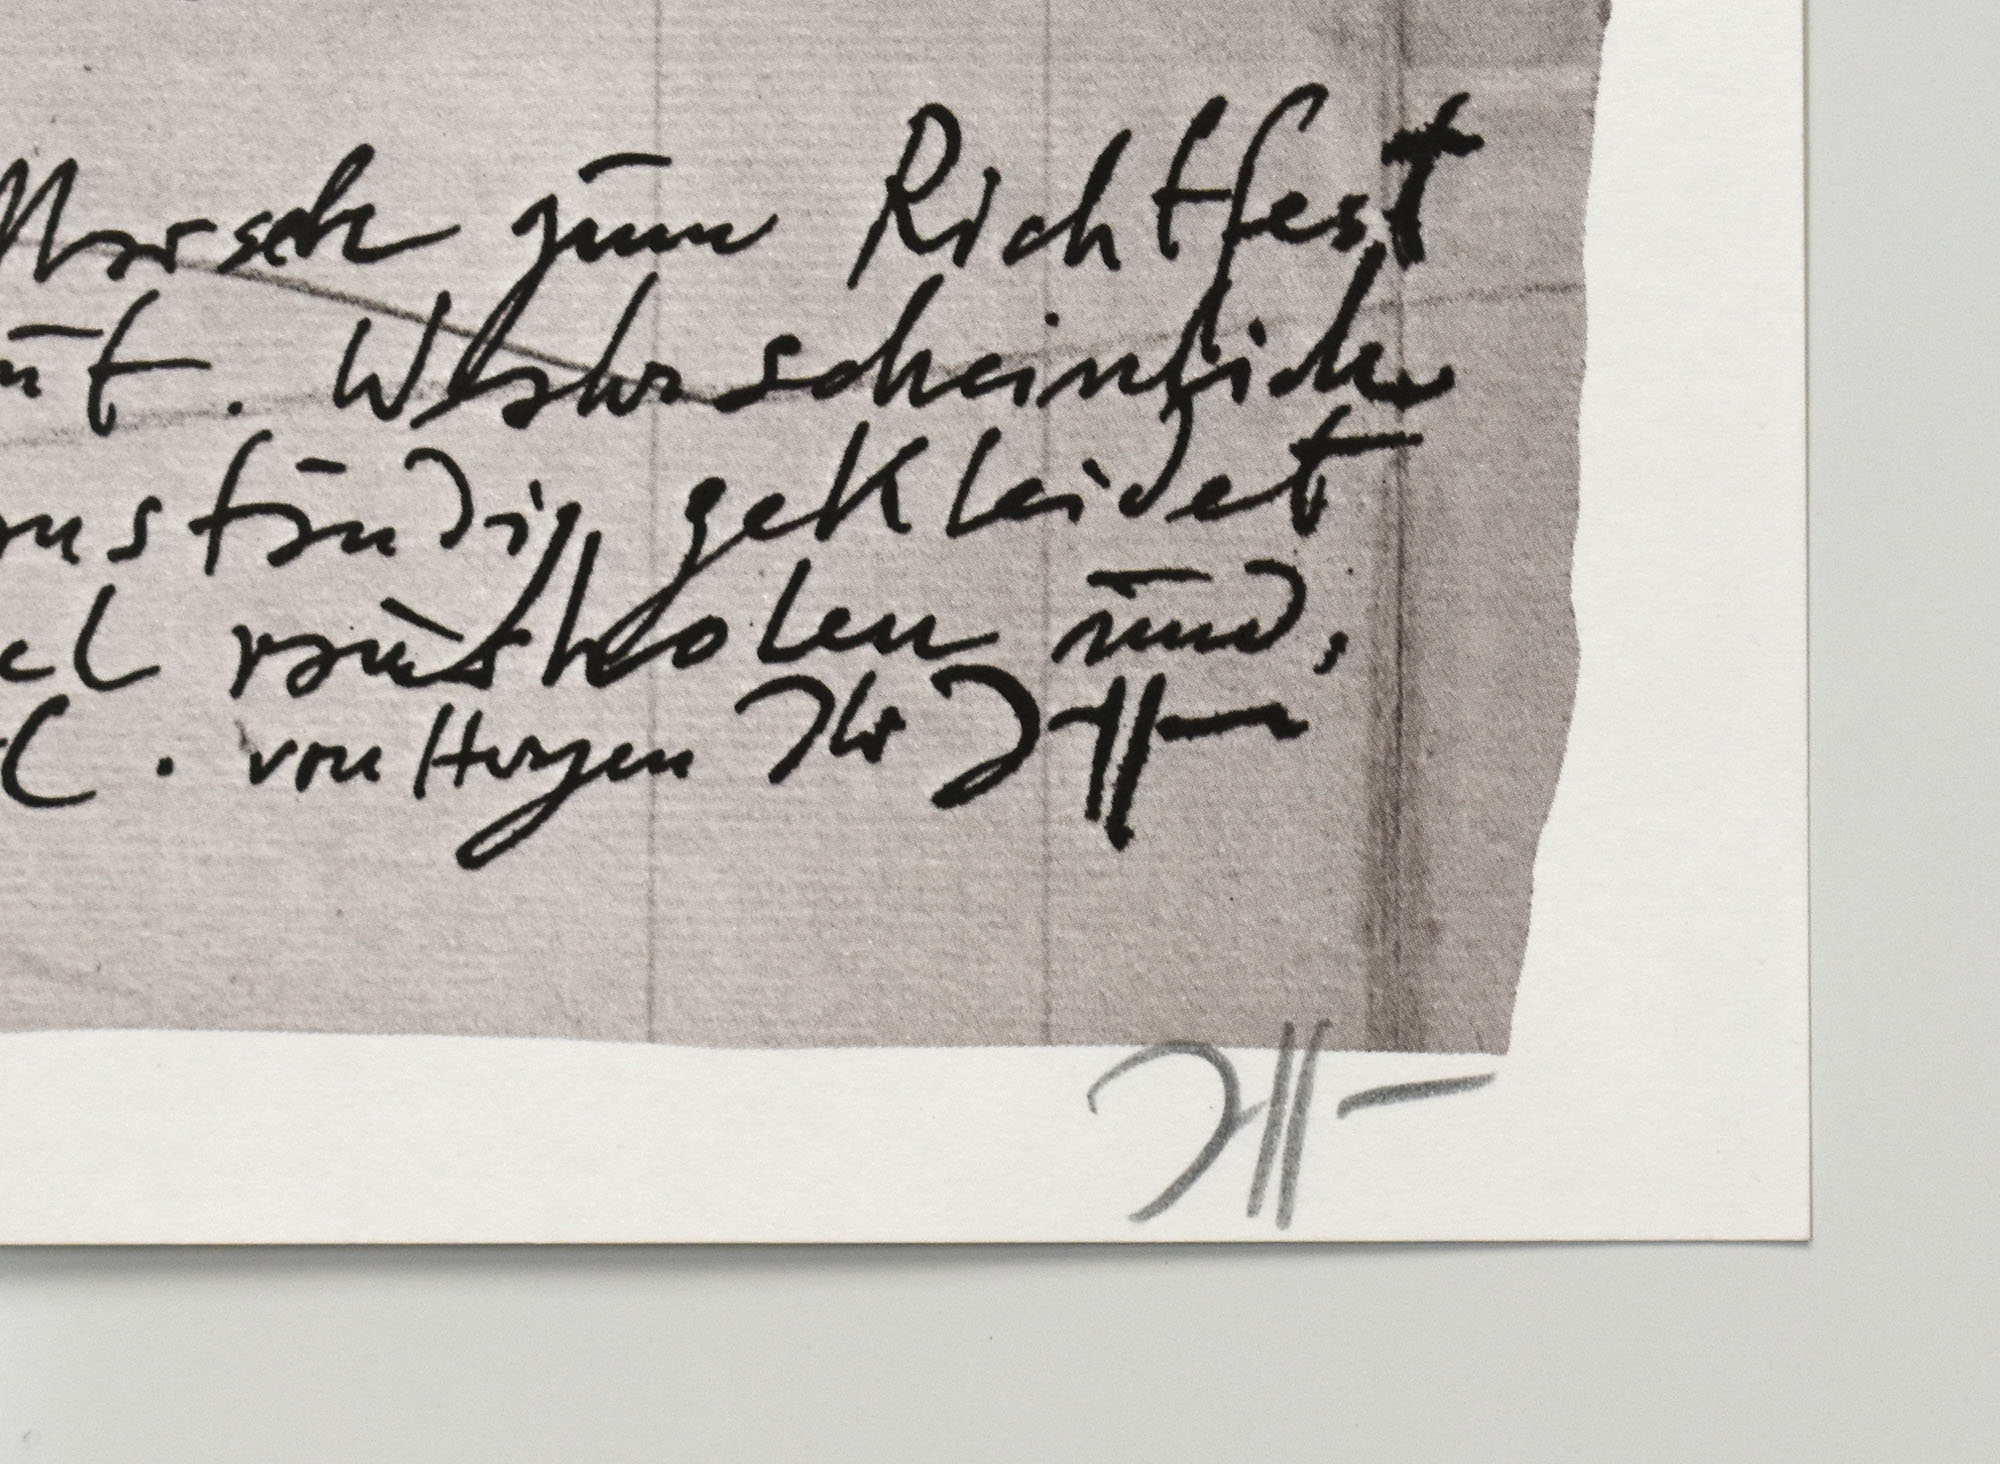 Marsch zum Richtfest
ut. Wahrscheinlich
anständig gekleidet
el rausholen und,
. von Herzen Ihr